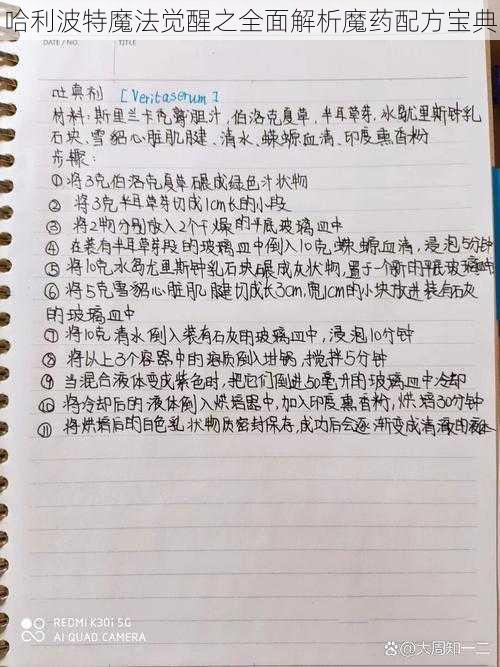 哈利波特魔法觉醒之全面解析魔药配方宝典
NO.
DATE
TITLE
吐真剂 [Veritaserum]
材料:斯里兰卡 胆汁,伯洛克夏草,半耳草芽,水 尤里斯钟乳
石块,雪貂心脏肌腱,清水,蝾螈血清,印度熏香粉
步骤:
①将3克伯洛克夏草碾成绿色汁状物
② 将3克半耳草芽切成1cm长的小段
③ 将2物分别放入2个干燥的平底玻璃皿中
④ 在装有半耳草芽段的玻璃皿中倒入10克蝾螈血清,浸泡5分钟
⑤ 将10克水岛尤里斯钟乳石块碾成灰状物,置于一个新的平底玻璃皿中
⑥ 将5克雪貂心脏肌腱切成长3cm,宽1cm的小块放进装有石灰
的玻璃皿中
⑦ 将10克清水倒入装有石灰的玻璃皿中,浸泡10分钟
⑧ 将以上3个容器中的溶质倒入坩锅,搅拌5分钟
⑨ 当混合液体变成紫色时,把它们倒进50毫升的玻璃皿中冷却
⑩ 将冷却后的液体倒入烘焙器中,加入印度熏香粉,烘焙30分钟
⑪ 将烘焙后的白色乳状物质密封保存,成功后会逐渐变成清澈的液体
REDMI K30i 5G
AI QUAD CAMERA
@大周知一二